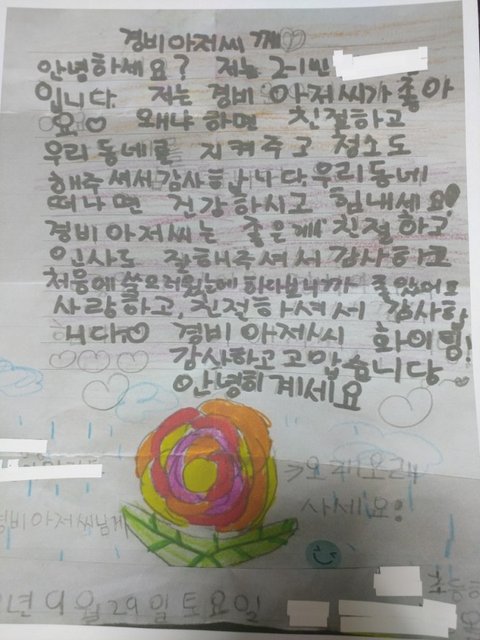 경비아저씨께♡
안녕하세요? 저는 2-1반
입니다. 저는 경비 아저씨가 좋아
요♡ 왜냐 하면 친절하고
우리동네를 지켜주고 청소도
해주셔서 감사합니다. 우리동네
떠나면 건강하시고 힘내세요!
경비아저씨는 좋은게 친절하고
인사도 잘해주셔서 감사하고
처음에
사랑하고, 친절하셔서 감사합
니다♡ 경비 아저씨 화이팅!
감사하고고맙습니다
안녕히계세요
→오래오래
사세요!
경비아저씨님께
년 9월 29일 토요일